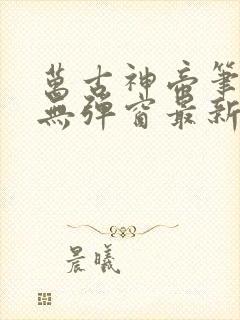 萬古神帝筆
無彈窗最新
晨曦